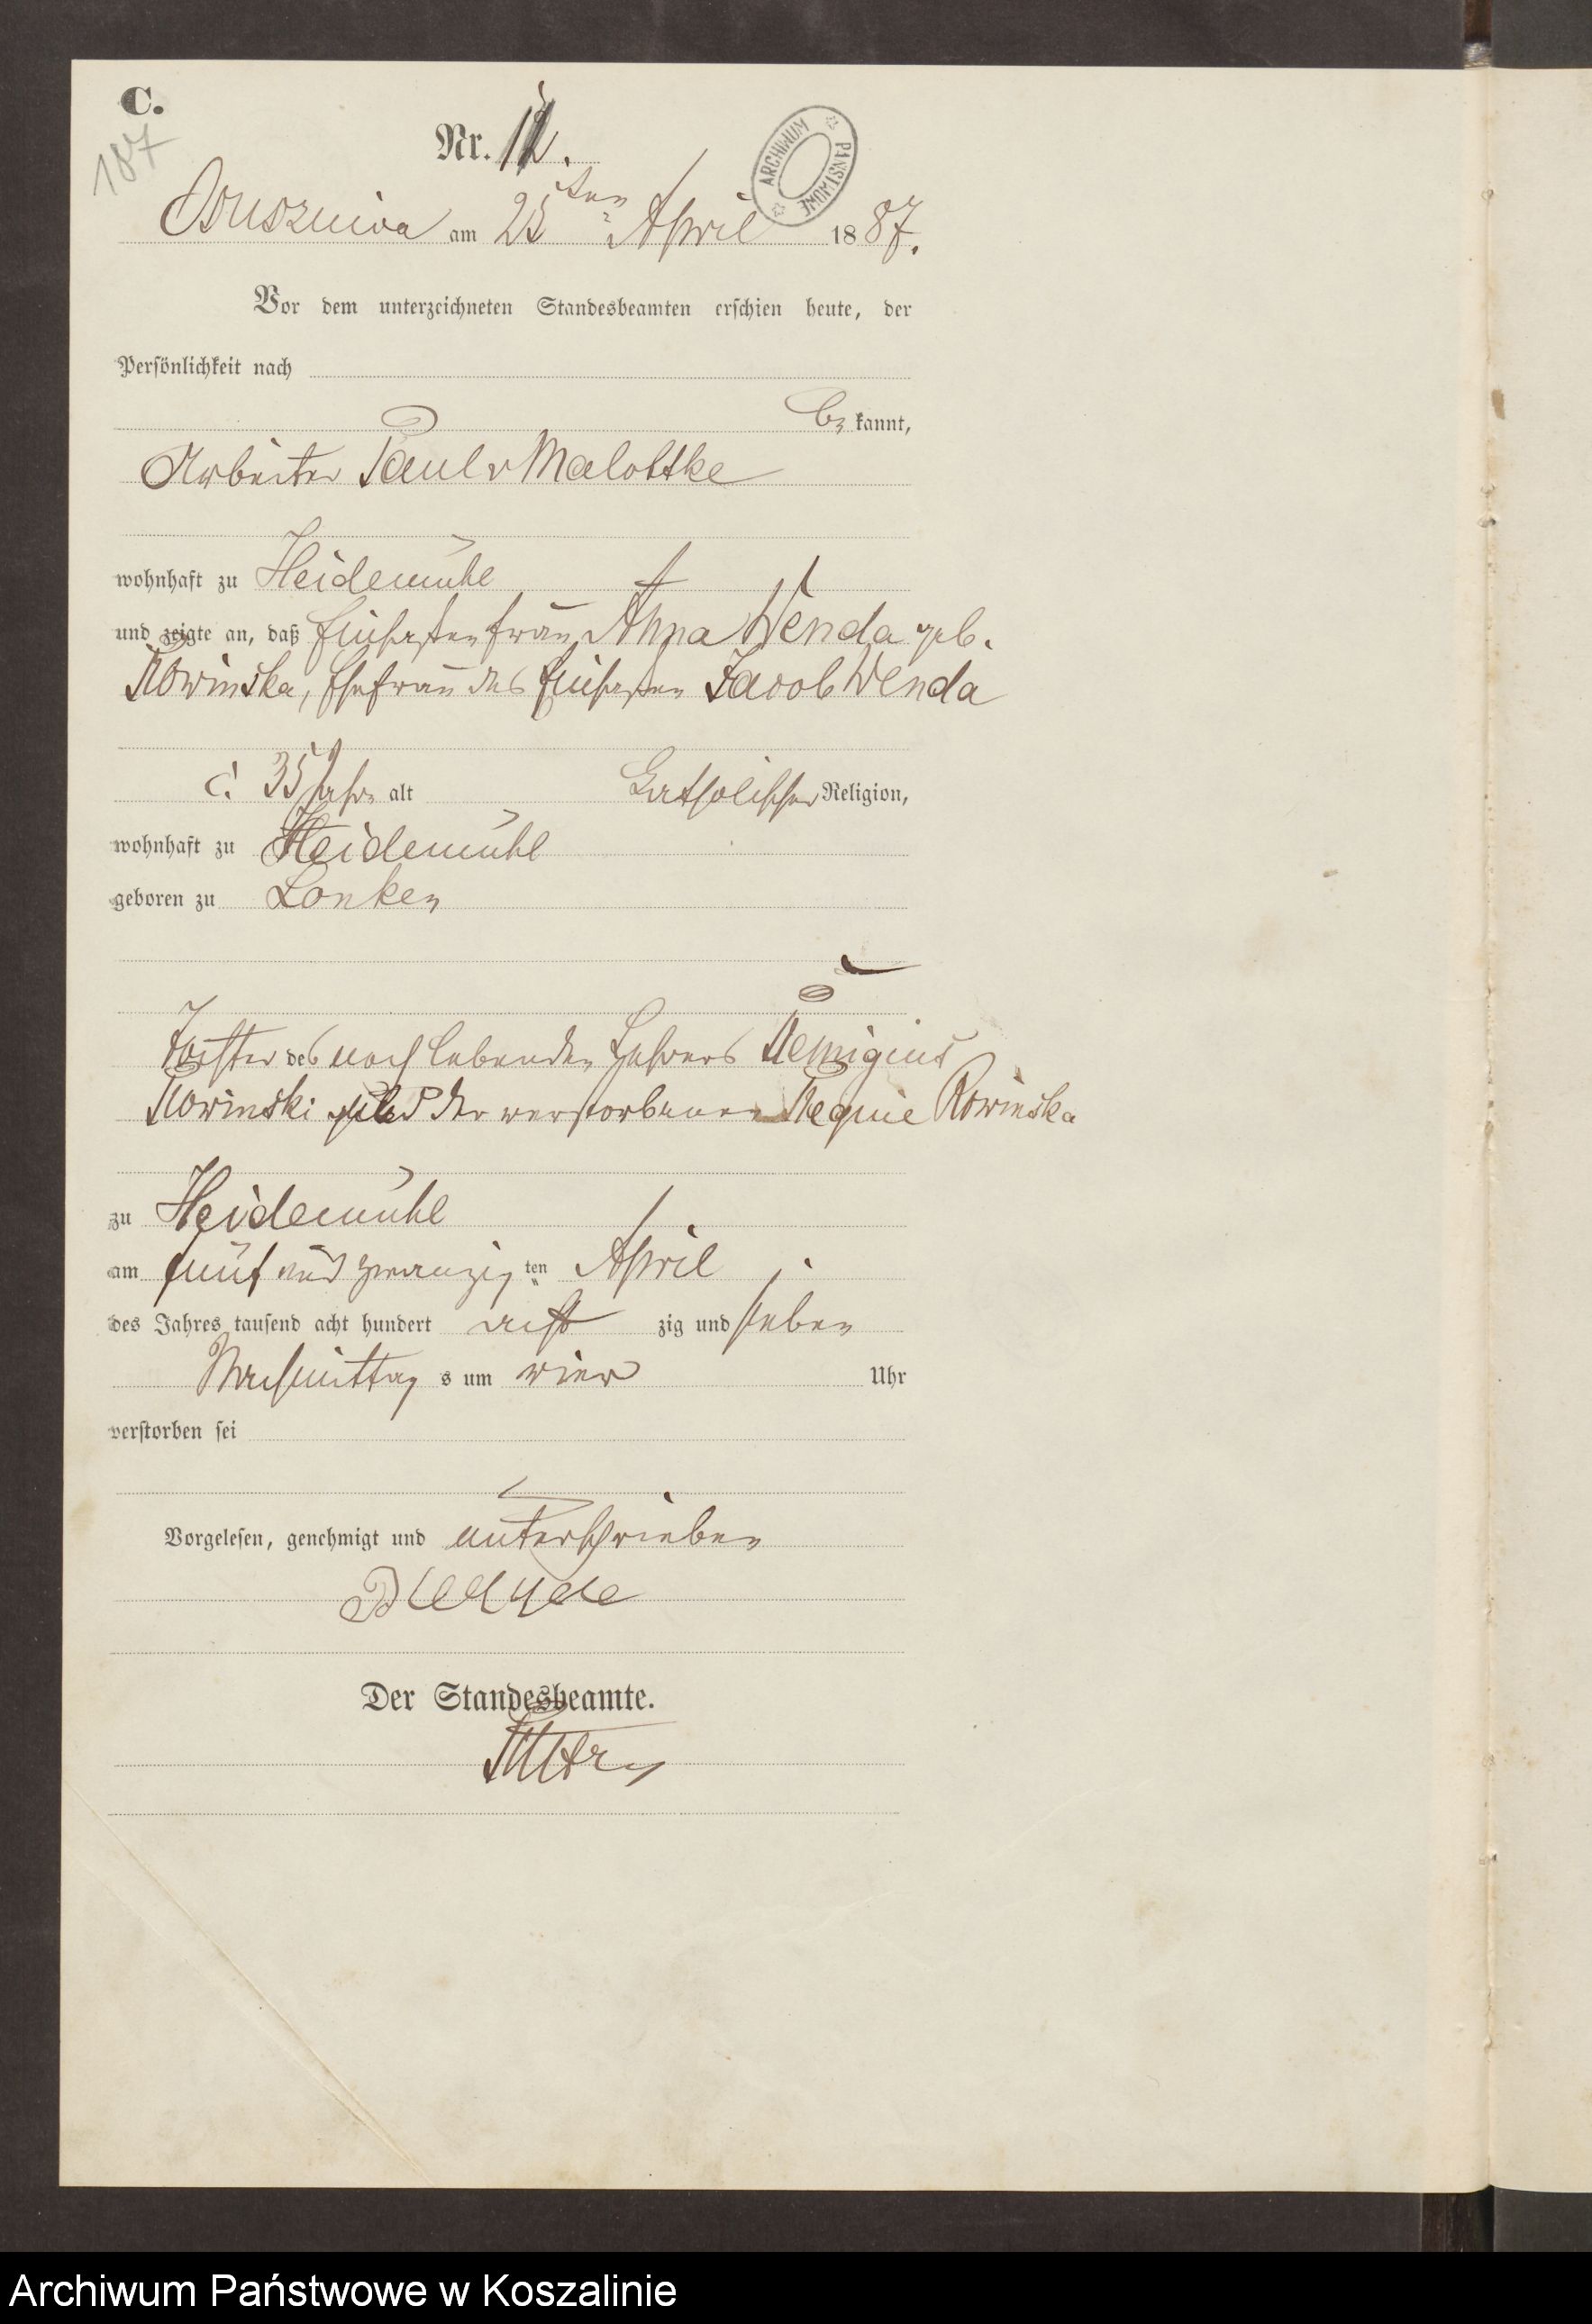 C.
187
Nr. 12.
ARCHIWUM PAŃSTWOWE
Osuszniva am 25ten April 1887.
Vor dem unterzeichneten Standesbeamten erschien heute, der
Persönlichkeit nach
bekannt,
Arbeiter Paul v Malottke
wohnhaft zu Heidemühl
und zeigte an, daß Einsassenfrau Anna Wenda geb.
Rowinska, Ehefrau des Einsassen Jacob Wenda
c. 35 Jahre alt Katholischer Religion,
wohnhaft zu Heidemühl
geboren zu Lonken
Tochter des noch lebenden Lehrers Remigius
Rowinski und der verstorbenen Rowinska
zu Heidemühl
am fünf und zwanzigten April
des Jahres tausend acht hundert acht zig und sieben
Nachmittags um vier Uhr
verstorben sei
Vorgelesen, genehmigt und unterschrieben
Der Standesbeamte.
Archiwum Państwowe w Koszalinie